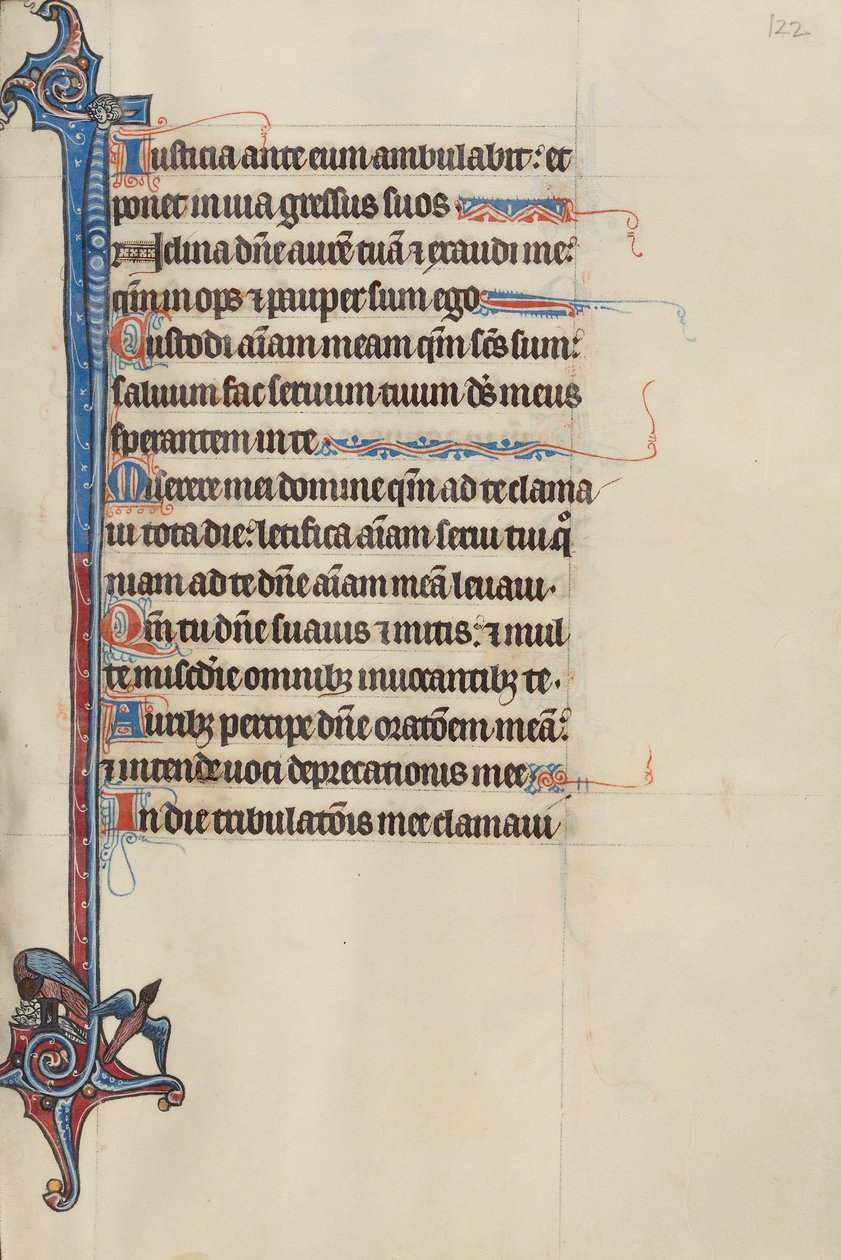 122
Iusticia ante eum ambulabit: et
ponet in uia gressus suos
Inclina dñe aurē tuā ⁊ exaudi me:
qm̄ inops ⁊ pauper sum ego
Custodi aīam meam qm̄ scs̄ sum:
saluum fac seruum tuum ds̄ meus
sperantem in te
Miserere mei domine qm̄ ad te clama
ui tota die: letifica aīam serui tui qͦ
niam ad te dñe aīam meā leuaui.
Qm̄ tu dñe suauis ⁊ mitis: ⁊ mul
te misc̄die omnibꝫ inuocantibꝫ te.
Auribꝫ percipe dñe oratōem meā:
⁊ intende uoci deprecationis mee
In die tribulatōis mee clamaui